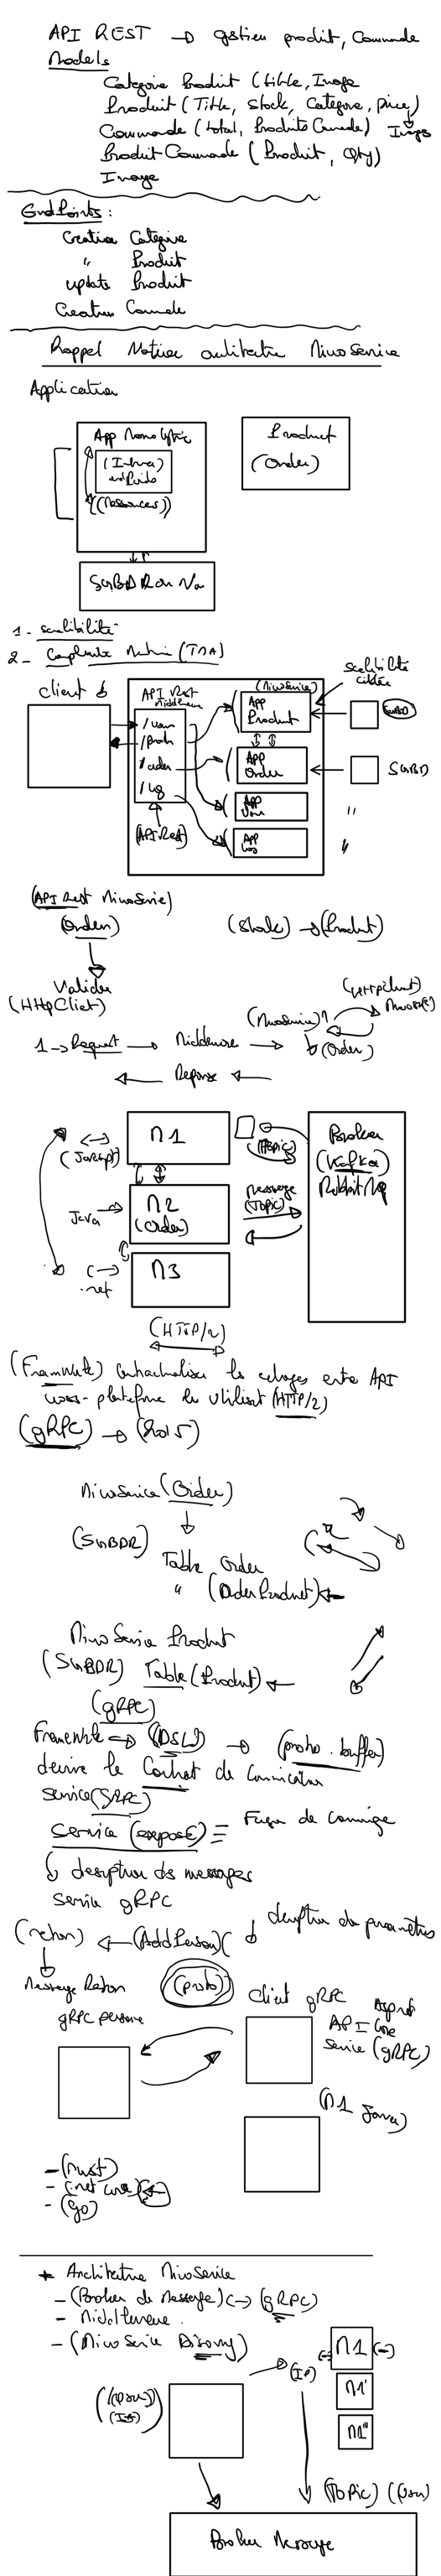 API REST → gestion produit, Commande
Models
Categorie Produit (title, Image
Produit (Title, stock, Categorie, price)
Commande (total, Produits Commande) Image
Produit Commande (Produit, Qty)
Image
EndPoints :
Creation Categorie
" Produit
update Produit
Creation Commande
Rappel Notion architecture MicroService
Application
App Monolytic
(Interne)
endPoints
(Ressources)
Product
(Order)
SGBD R ou Non
1 - scalibilité
2 - Complexité Metier (TMA)
client
API Rest
Middleware
/user
/prod
/order
/log
(API Rest)
(MicroService)
App
Product
App
Order
App
User
App
Log
scalibilité
ciblée
SGBD
SGBD
"
"
(API Rest MicroService)
(Order)
(Stock) → (Product)
Valider
(HttpClient)
1 → Request → Middleware → (Order)
(MicroService)
(HttpClient)
← Reponse ←
M1
(Javascript)
M2
(Order)
Java
M3
.net
(Topic)
Message
(Topic)
Broker
(Kafka)
RabbitMq
(HTTP/2)
(FrameWorke) les echanges entre API
cross-plateforme en utilisant (HTTP/2)
(gRPC) → (2015)
MicroService (Order)
(SGBDR)
Table Order
" (OrderProduct) ←
MicroService Product
(SGBDR) Table (Product) ←
(gRPC)
FrameWorke ↔ (DSL) → (proto.buffer)
decrire le Contrat de Communication
service (gRPC)
Service (exposé) =
description des messages
service gRPC
(return) ← (AddPerson) ( description des parametres
Message Retour
(proto)
gRPC personne
Client gRPC
Aspnet
API Core
service (gRPC)
(M1 Java)
- (rust)
- (.net core) ←
- (go)
+ Architecture MicroService
- (Broker de Message) ↔ (gRPC)
- Middleware.
- (MicroService Discovery)
(IP)
M1
M1'
M1"
(Topic) (User)
Broker Message